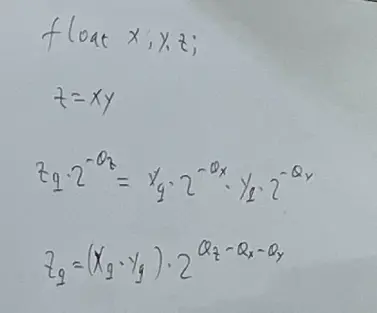 float x, y, z;
z = xy
z_q · 2^{-Q_z} = x_q · 2^{-Q_x} · y_q · 2^{-Q_y}
z_q = (x_q · y_q) · 2^{Q_z - Q_x - Q_y}